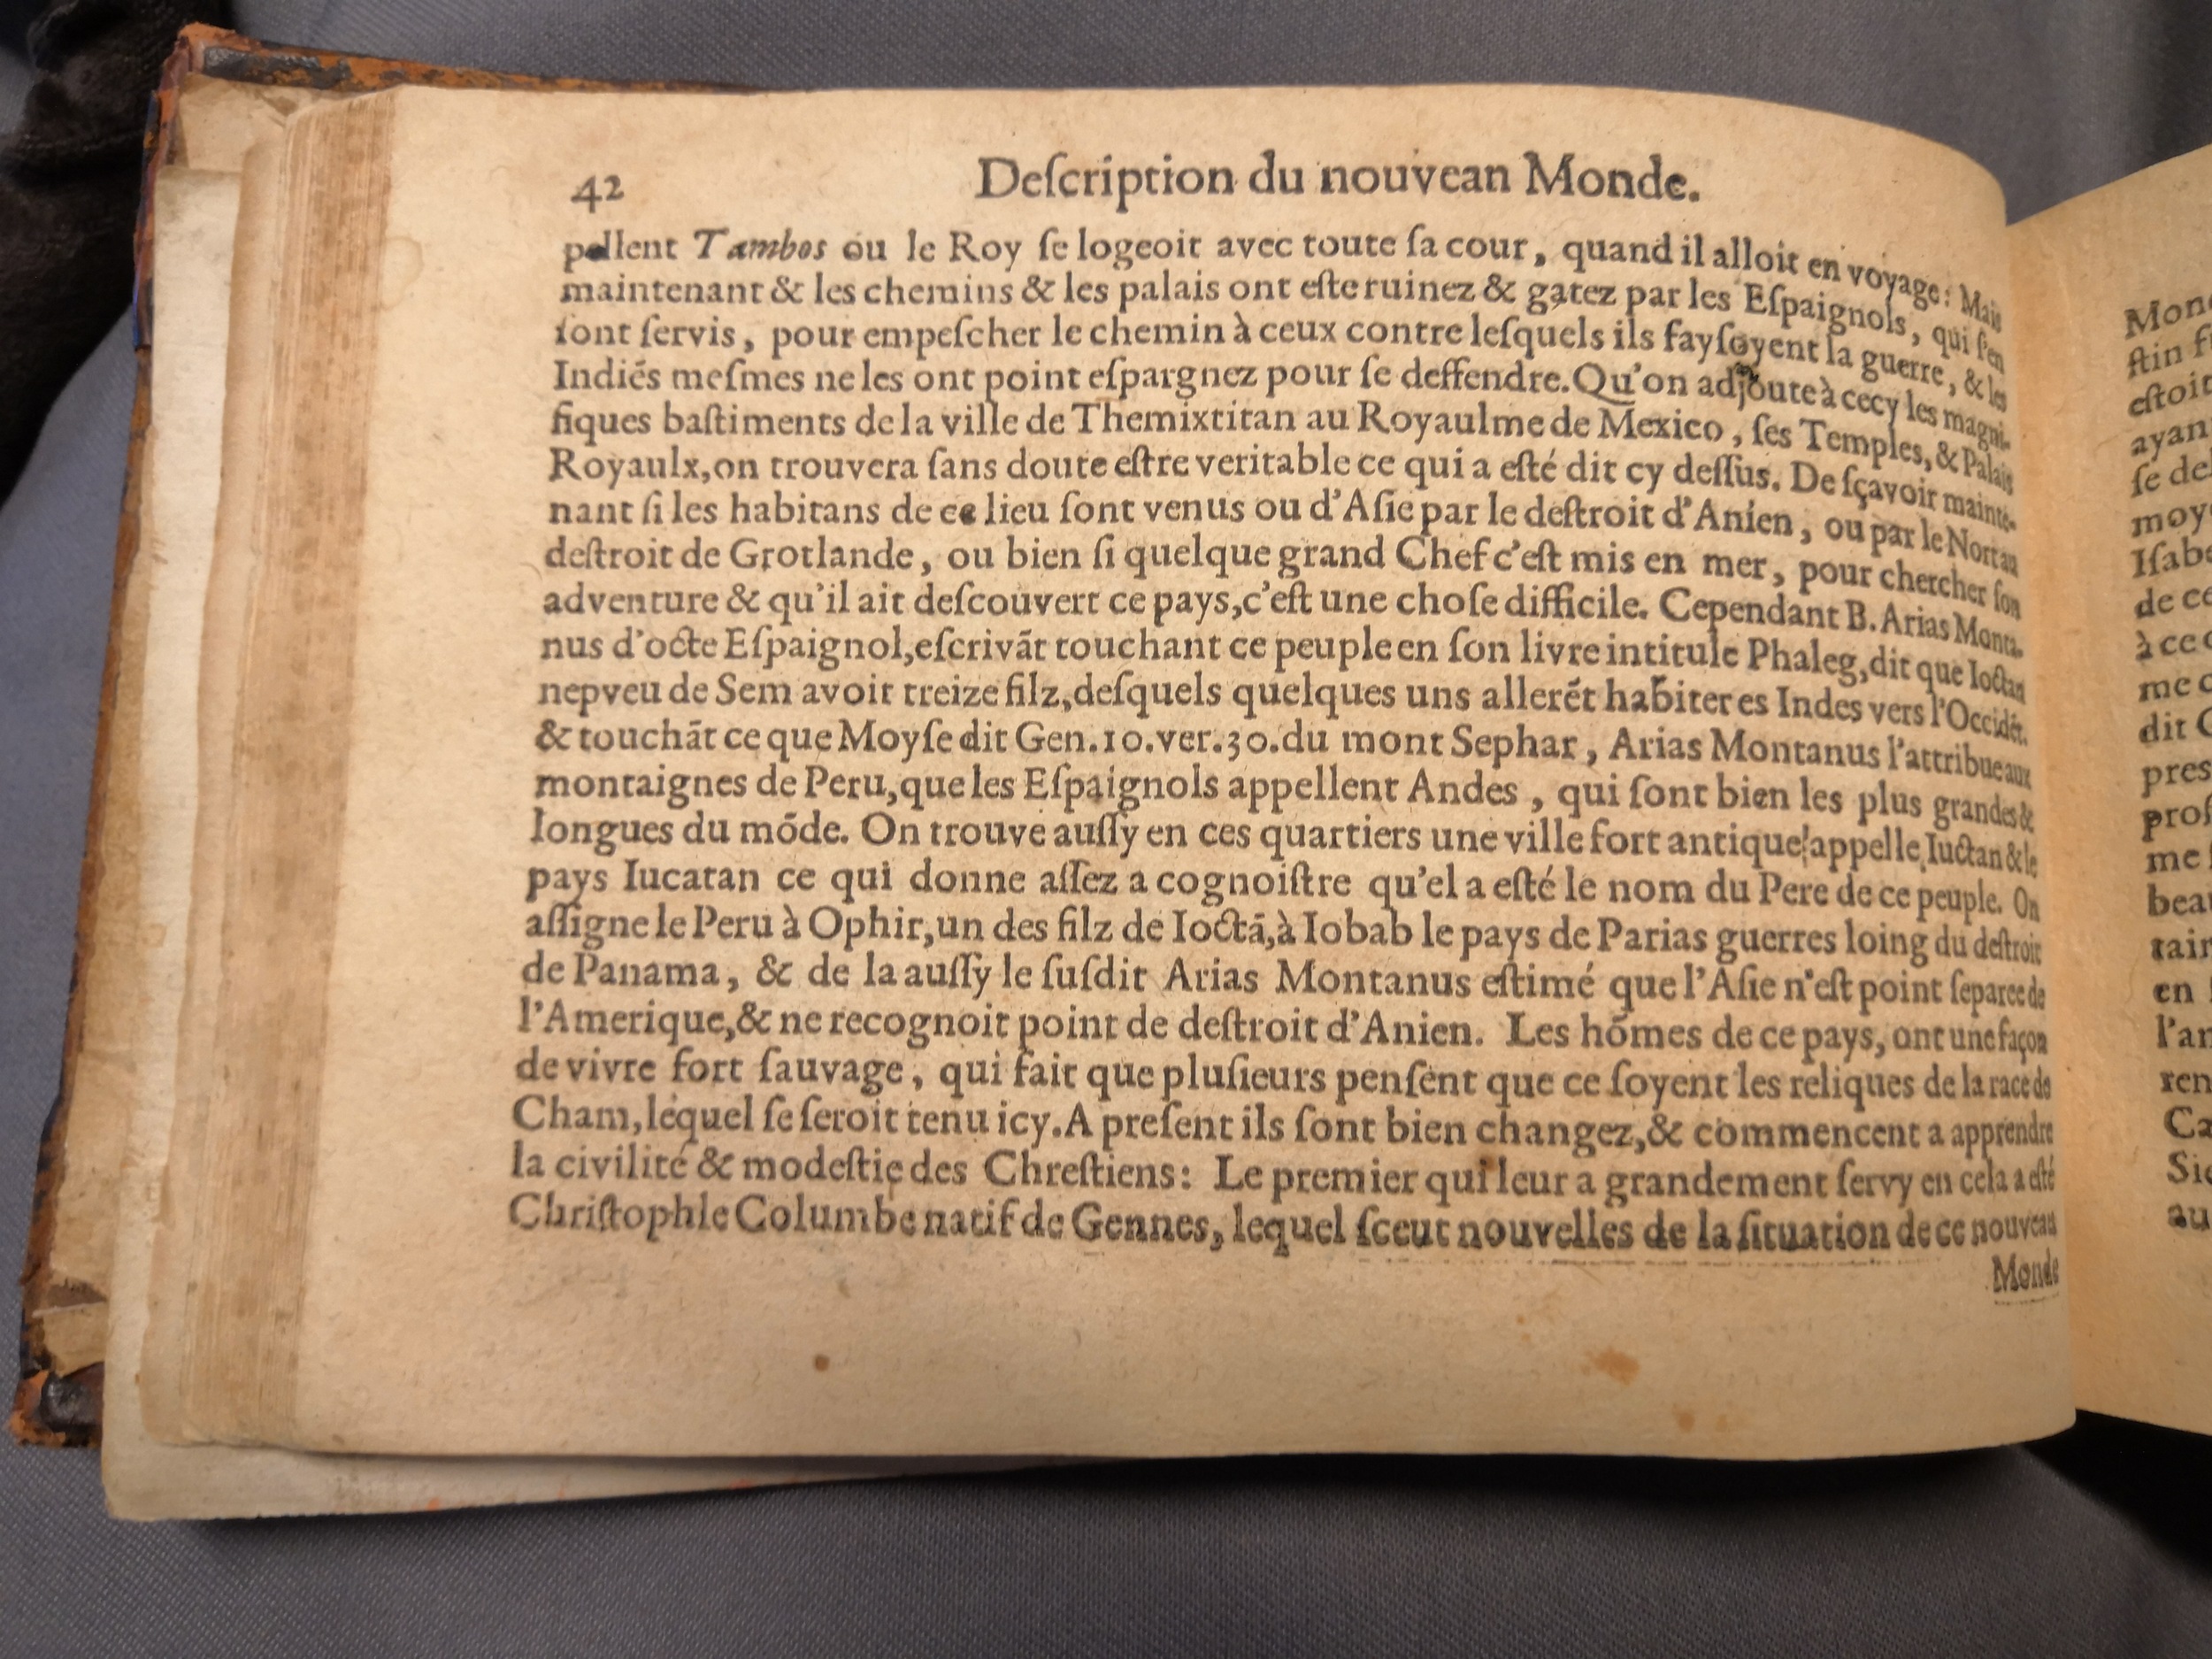 42 Deſcription du nouvean Monde.
pellent Tambos ou le Roy ſe logeoit avec toute ſa cour, quand il alloit en voyage: Mais
maintenant & les chemins & les palais ont eſte ruinez & gatez par les Eſpaignols, qui ſ'en
ſont ſervis, pour empeſcher le chemin à ceux contre leſquels ils fayſoyent la guerre, & les
Indiés meſmes ne les ont point eſpargnez pour ſe deffendre. Qu'on adjoute à cecy les magni-
fiques baſtiments de la ville de Themixtitan au Royaulme de Mexico, ſes Temples, & Palais
Royaulx, on trouvera ſans doute eſtre veritable ce qui a eſté dit cy deſſus. De ſçavoir mainte-
nant ſi les habitans de ce lieu ſont venus ou d'Aſie par le deſtroit d'Anien, ou par le Nort au
deſtroit de Grotlande, ou bien ſi quelque grand Chef c'eſt mis en mer, pour chercher ſon
adventure & qu'il ait deſcouvert ce pays, c'eſt une choſe difficile. Cependant B. Arias Monta-
nus d'octe Eſpaignol, eſcrivãt touchant ce peuple en ſon livre intitule Phaleg, dit que Ioctan
nepveu de Sem avoit treize filz, deſquels quelques uns allerẽt habiter es Indes vers l'Occidẽt.
& touchãt ce que Moyſe dit Gen. 10. ver. 30. du mont Sephar, Arias Montanus l'attribue aux
montaignes de Peru, que les Eſpaignols appellent Andes, qui ſont bien les plus grandes &
longues du mõde. On trouve auſſy en ces quartiers une ville fort antique appelle Iuctan & le
pays Iucatan ce qui donne aſſez a cognoiſtre qu'el a eſté le nom du Pere de ce peuple. On
aſſigne le Peru à Ophir, un des filz de Ioctã, à Iobab le pays de Parias guerres loing du deſtroit
de Panama, & de la auſſy le ſuſdit Arias Montanus eſtimé que l'Aſie n'eſt point ſeparee de
l'Amerique, & ne recognoit point de deſtroit d'Anien. Les hõmes de ce pays, ont une façon
de vivre fort ſauvage, qui fait que pluſieurs penſent que ce ſoyent les reliques de la race de
Cham, lequel ſe ſeroit tenu icy. A preſent ils ſont bien changez, & commencent a apprendre
la civilité & modeſtie des Chreſtiens: Le premier qui leur a grandement ſervy en cela a eſté
Chriſtophle Columbe natif de Gennes, lequel ſceut nouvelles de la ſituation de ce nouveau
Monde